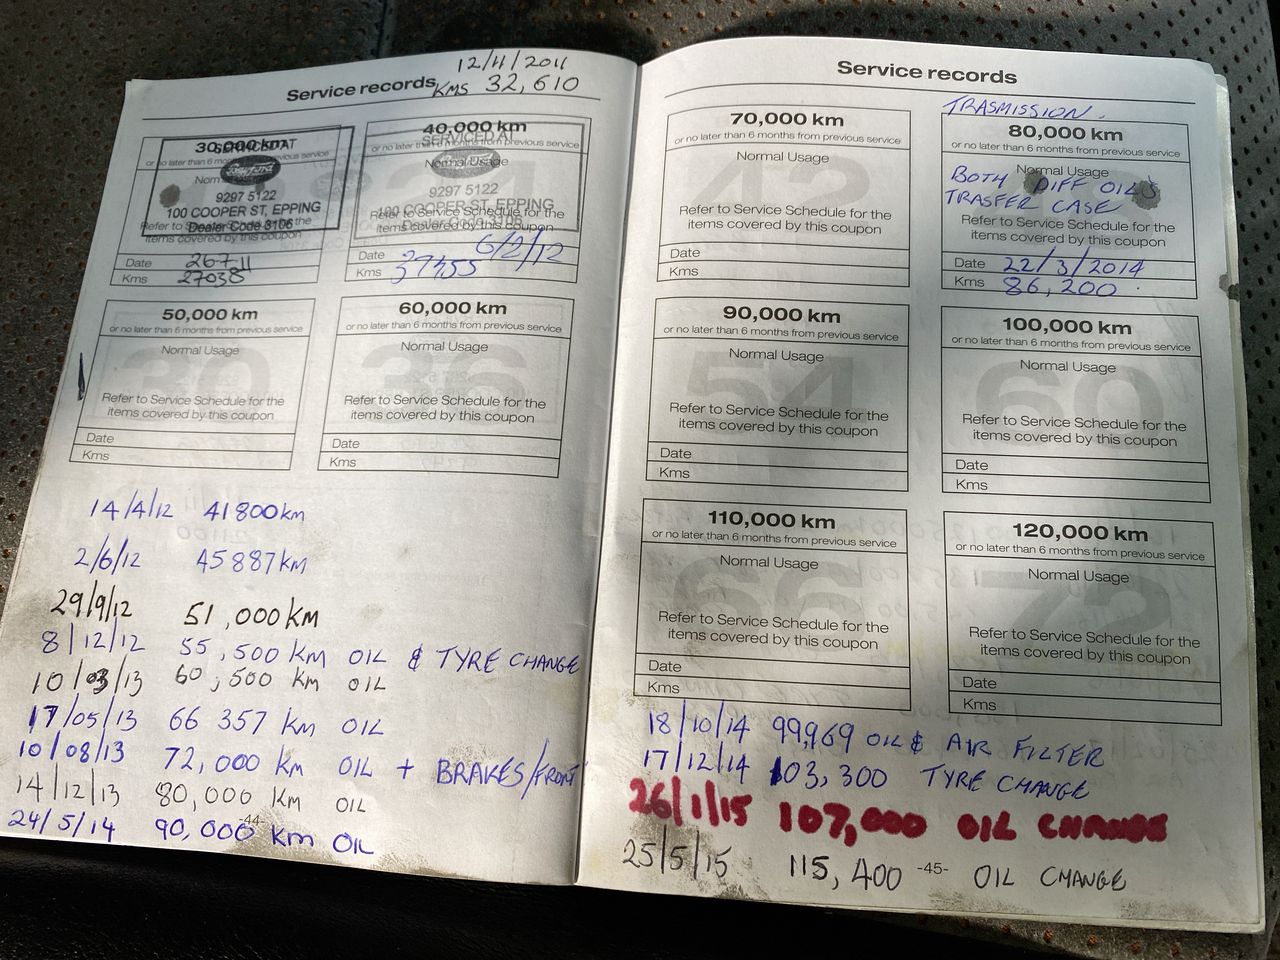 12/11/2011
Service records
Kms 32,610
30,000 km
SERVICED AT
or no later than 6 months from previous service
9297 5122
100 COOPER ST, EPPING
Dealer Code 3106
Refer to Service Schedule for the
items covered by this coupon
Date
Kms 27038
40,000 km
SERVICED AT
or no later than 6 months from previous service
Normal Usage
9297 5122
100 COOPER ST, EPPING
Dealer Code 3106
Refer to Service Schedule for the
items covered by this coupon
Date 6/2/12
Kms 37455
50,000 km
or no later than 6 months from previous service
Normal Usage
30
Refer to Service Schedule for the
items covered by this coupon
Date
Kms
60,000 km
or no later than 6 months from previous service
Normal Usage
36
Refer to Service Schedule for the
items covered by this coupon
Date
Kms
14/4/12 41800km
2/6/12 45887km
29/9/12 51,000 KM
8/12/12 55,500 KM OIL & TYRE CHANGE
10/03/13 60,500 KM OIL
17/05/13 66 357 KM OIL
10/08/13 72,000 KM OIL + BRAKES/FRONT
14/12/13 80,000 KM OIL
-44-
24/5/14 90,000 KM OIL
Service records
70,000 km
or no later than 6 months from previous service
Normal Usage
42
Refer to Service Schedule for the
items covered by this coupon
Date
Kms
TRASMISSION.
80,000 km
or no later than 6 months from previous service
Normal Usage
BOTH DIFF OILS
TRASFER CASE
Refer to Service Schedule for the
items covered by this coupon
Date 22/3/2014
Kms 86,200
90,000 km
or no later than 6 months from previous service
Normal Usage
54
Refer to Service Schedule for the
items covered by this coupon
Date
Kms
100,000 km
or no later than 6 months from previous service
Normal Usage
60
Refer to Service Schedule for the
items covered by this coupon
Date
Kms
110,000 km
or no later than 6 months from previous service
Normal Usage
66
Refer to Service Schedule for the
items covered by this coupon
Date
Kms
120,000 km
or no later than 6 months from previous service
Normal Usage
72
Refer to Service Schedule for the
items covered by this coupon
Date
Kms
18/10/14 99,969 OIL & AIR FILTER
17/12/14 103,300 TYRE CHANGE
26/1/15 107,000 OIL CHANGE
25/5/15 115,400 OIL CHANGE
-45-